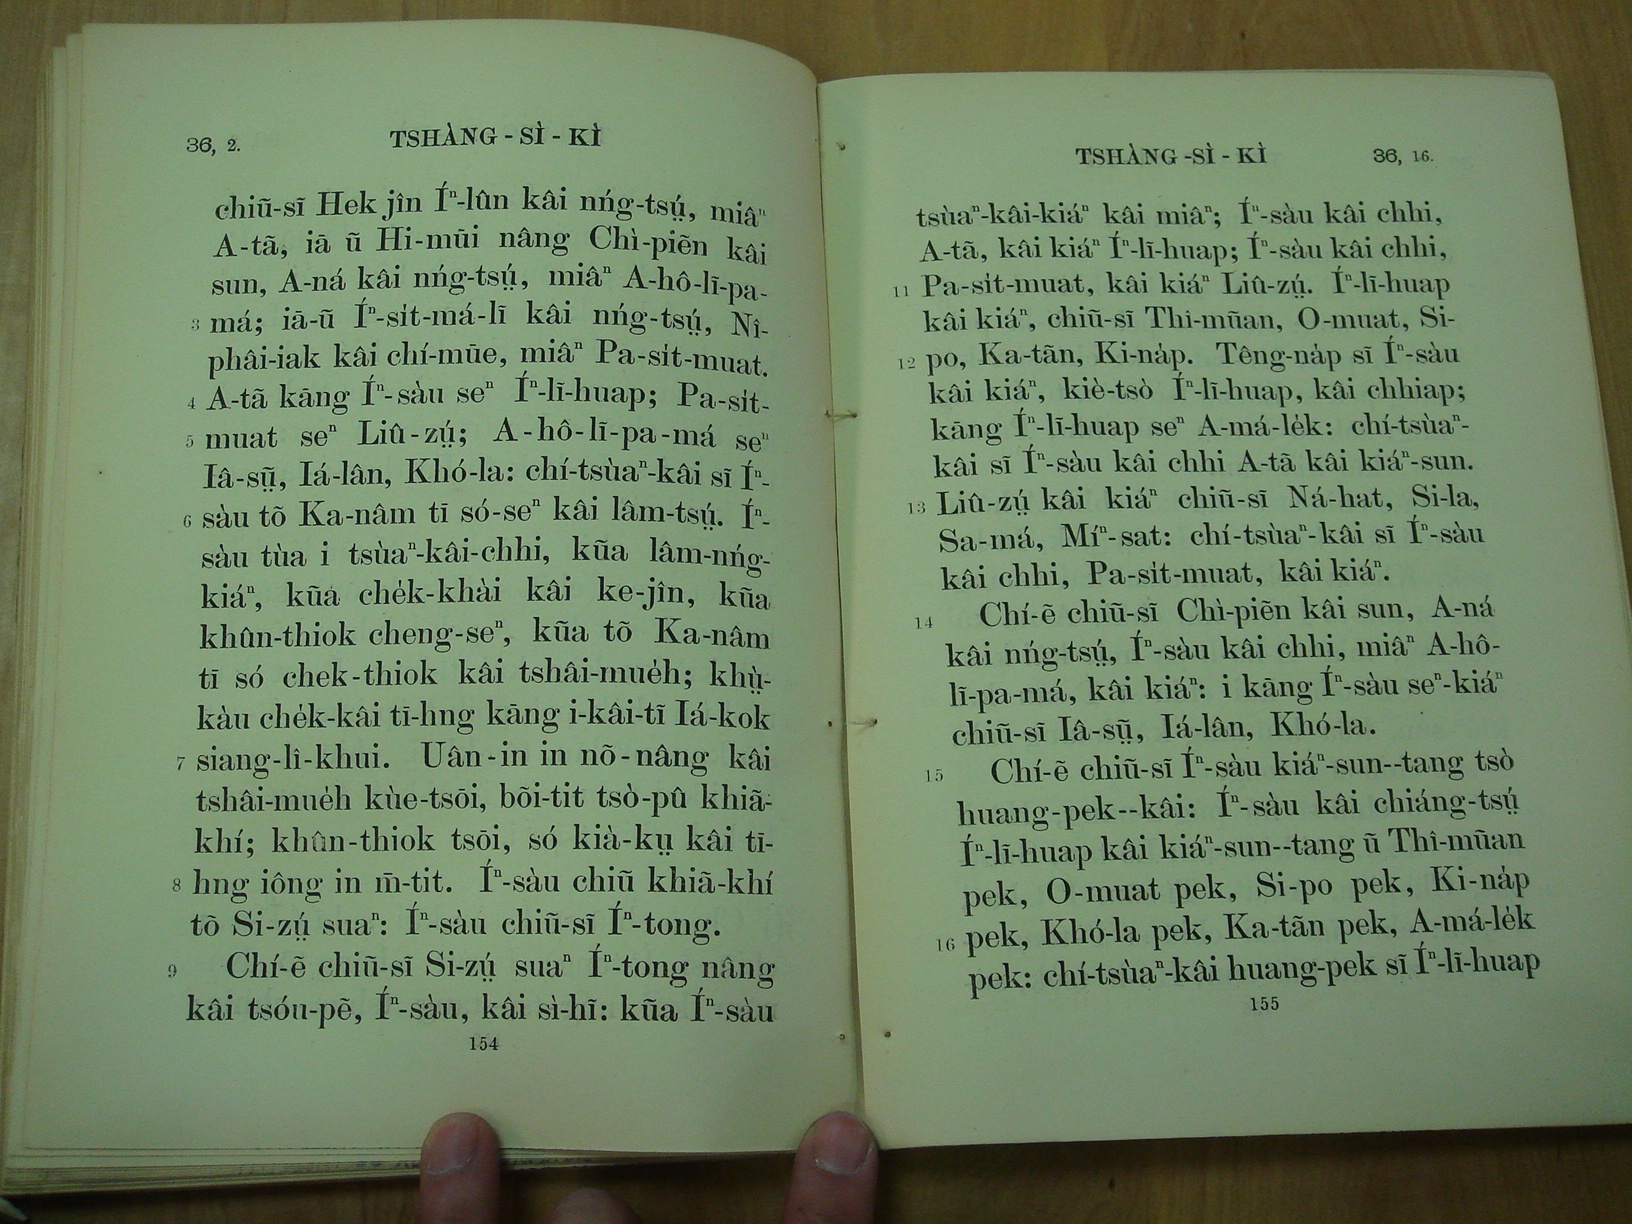 36, 2.
TSHÀNG - SÌ - KÌ
chiũ-sĩ Hek jîn Íⁿ-lûn kâi nńg-tsṳ́, miâⁿ
A-tã, iā ũ Hi-mūi nâng Chì-piẽn kâi
sun, A-ná kâi nńg-tsṳ́, miâⁿ A-hô-lī-pa-
3 má; iā-ũ Íⁿ-si̍t-má-lī kâi nńg-tsṳ́, Nî-
phâi-iak kâi chí-mūe, miâⁿ Pa-si̍t-muat.
4 A-tã kāng Íⁿ-sàu seⁿ Íⁿ-lī-huap; Pa-si̍t-
5 muat seⁿ Liû-zṳ́; A-hô-lī-pa-má seⁿ
Iâ-sṳ̃, Iá-lân, Khó-la: chí-tsùaⁿ-kâi sĩ Íⁿ-
6 sàu tõ Ka-nâm tī só-seⁿ kâi lâm-tsṳ́. Íⁿ-
sàu tùa i tsùaⁿ-kâi-chhi, kũa lâm-nńg-
kiáⁿ, kũa che̍k-khài kâi ke-jîn, kũa
khûn-thiok cheng-seⁿ, kũa tõ Ka-nâm
tī só chek-thiok kâi tshâi-mue̍h; khṳ̀-
kàu che̍k-kâi tī-hng kāng i-kâi-tĩ Iá-kok
7 siang-lî-khui. Uân-in in nõ-nâng kâi
tshâi-mue̍h kùe-tsōi, bõi-tit tsò-pû khiã-
khí; khûn-thiok tsōi, só kià-kṳ kâi tī-
8 hng iông in m̄-tit. Íⁿ-sàu chiũ khiã-khí
tõ Si-zṳ́ suaⁿ: Íⁿ-sàu chiũ-sĩ Íⁿ-tong.
9 Chí-ẽ chiũ-sĩ Si-zṳ́ suaⁿ Íⁿ-tong nâng
kâi tsóu-pẽ, Íⁿ-sàu, kâi sì-hĩ: kũa Íⁿ-sàu
154
TSHÀNG -SÌ - KÌ
36, 16.
tsùaⁿ-kâi-kiáⁿ kâi miâⁿ; Íⁿ-sàu kâi chhi,
A-tã, kâi kiáⁿ Íⁿ-lī-huap; Íⁿ-sàu kâi chhi,
11 Pa-si̍t-muat, kâi kiáⁿ Liû-zṳ́. Íⁿ-lī-huap
kâi kiáⁿ, chiũ-sĩ Thî-mũan, O-muat, Si-
12 po, Ka-tãn, Ki-na̍p. Têng-na̍p sĩ Íⁿ-sàu
kâi kiáⁿ, kiè-tsò Íⁿ-lī-huap, kâi chhiap;
kāng Íⁿ-lī-huap seⁿ A-má-le̍k: chí-tsùaⁿ-
kâi sĩ Íⁿ-sàu kâi chhi A-tã kâi kiáⁿ-sun.
13 Liû-zṳ́ kâi kiáⁿ chiũ-sĩ Ná-hat, Si-la,
Sa-má, Míⁿ-sat: chí-tsùaⁿ-kâi sĩ Íⁿ-sàu
kâi chhi, Pa-si̍t-muat, kâi kiáⁿ.
14 Chí-ẽ chiũ-sĩ Chì-piẽn kâi sun, A-ná
kâi nńg-tsṳ́, Íⁿ-sàu kâi chhi, miâⁿ A-hô-
lī-pa-má, kâi kiáⁿ: i kāng Íⁿ-sàu seⁿ-kiáⁿ
chiũ-sĩ Iâ-sṳ̃, Iá-lân, Khó-la.
15 Chí-ẽ chiũ-sĩ Íⁿ-sàu kiáⁿ-sun--tang tsò
huang-pek--kâi: Íⁿ-sàu kâi chiáng-tsṳ́
Íⁿ-lī-huap kâi kiáⁿ-sun--tang ũ Thî-mũan
pek, O-muat pek, Si-po pek, Ki-na̍p
16 pek, Khó-la pek, Ka-tãn pek, A-má-le̍k
pek: chí-tsùaⁿ-kâi huang-pek sĩ Íⁿ-lī-huap
155